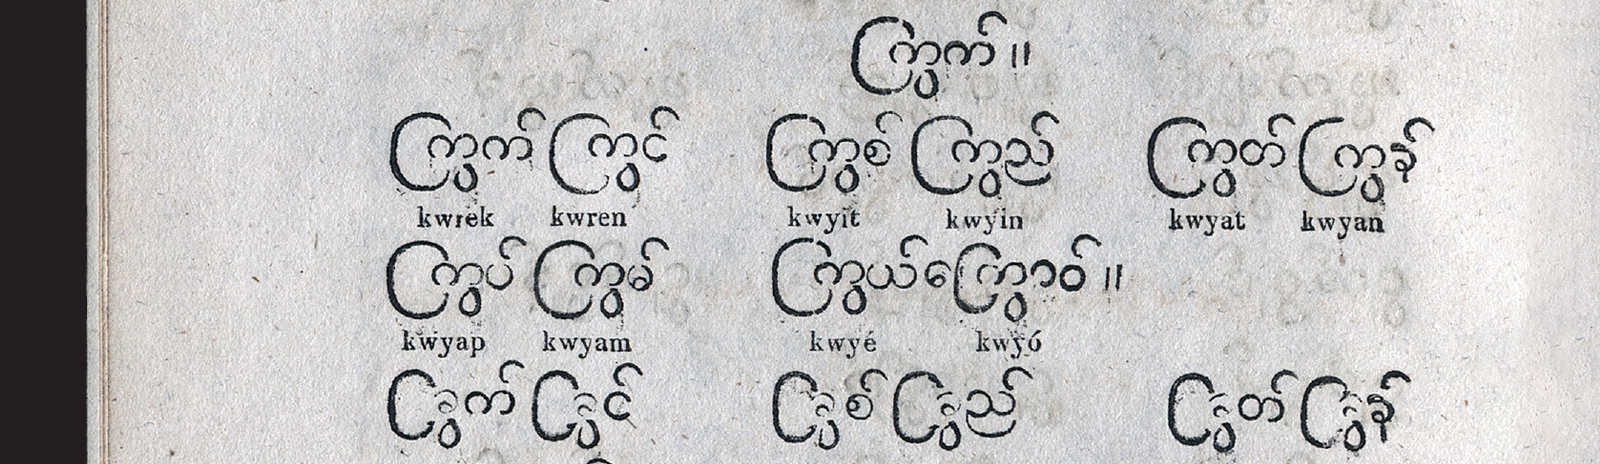 ကြွက်။
ကြွက် ကြွင် ကြွစ် ကြွည် ကြွတ် ကြွန်
kwrek kwren kwyit kwyin kwyat kwyan
ကြွပ် ကြွမ် ကြွယ် ကြွောဝ်။
kwyap kwyam kwyé kwyó
ငြွက် ငြွင် ငြွစ် ငြွည် ငြွတ် ငြွန်